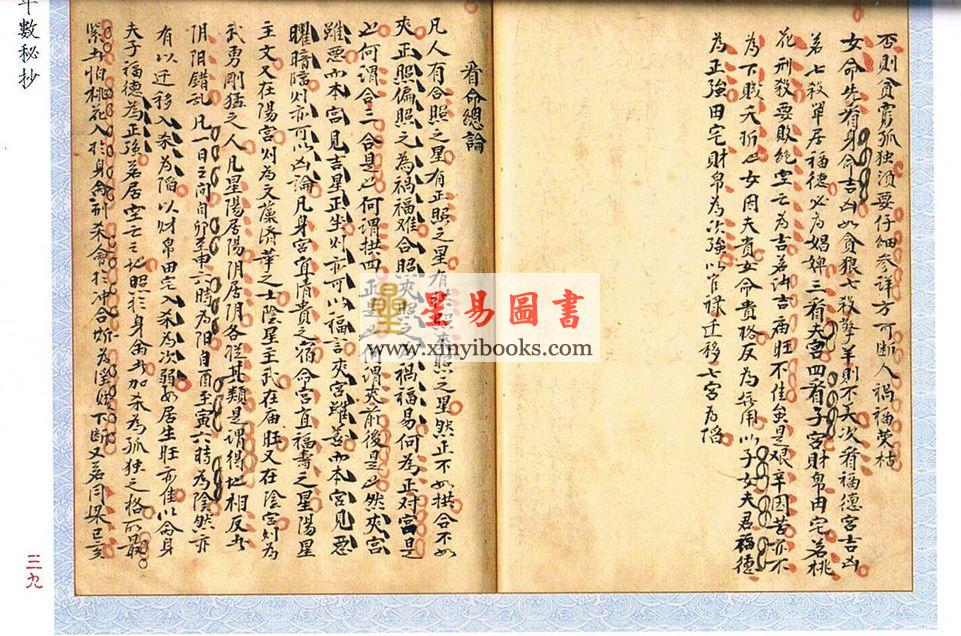 否則貪窮孤独須要仔細参详方可断人禍福荣枯
女命先看身命吉凶如貪狼七殺擎羊則不美次看福德宮吉凶
若七殺單居福德必为娼婢三看夫宮四看子宮財帛田宅若桃
花刑殺要敗絕空亡为吉若沖吉庙旺不佳虽是艰辛囯苦亦不
为下賎夭折也女因夫贵女命贵格反为無用以子女夫君福德
为正強田宅財帛为次強以官禄迁移七宮为陷
看命總論
凡人有合照之星有正照之星有 照之星然正不如拱合不如
夾正照偏照之為禍福难合照夾照 禍福易何為正对宮是
也何謂合三合是也何謂拱四正是 謂夾前後是也然夾宮
雖恶而本宮見吉星正坐則亦可以福言夾宮雖善而本宮見恶
曜暗臨則亦可以凶論凡身宮宜清贵之宿命宮宜福壽之星陽星
主文又在陽宮則为文藻済華之士陰星主武在庙旺又在陰宮則为
武勇刚猛之人凡星陽居陽阴居阴各從其類是謂得地相反为
阴阳錯乱凡一日之间自卯至申六時为阳自酉至寅六時为陰然亦
有以迁移入杀为陷以財帛田宅入杀为次弱如居生旺亦佳以命身
夫子福德为正強若居空亡之地照於身命再加杀为孤独之格而最
紧主怕桃花入於身命諸杀會於沖合断为淫泆下断又若同梁巳亥
年数秘抄
三九
星易图書
www.xinyibooks.com